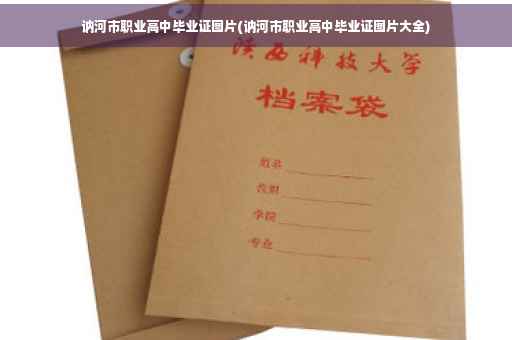 讷河市职业高中毕业证图片(讷河市职业高中毕业证图片大全)
陕西科技大学
档案袋
姓名
学院
专业